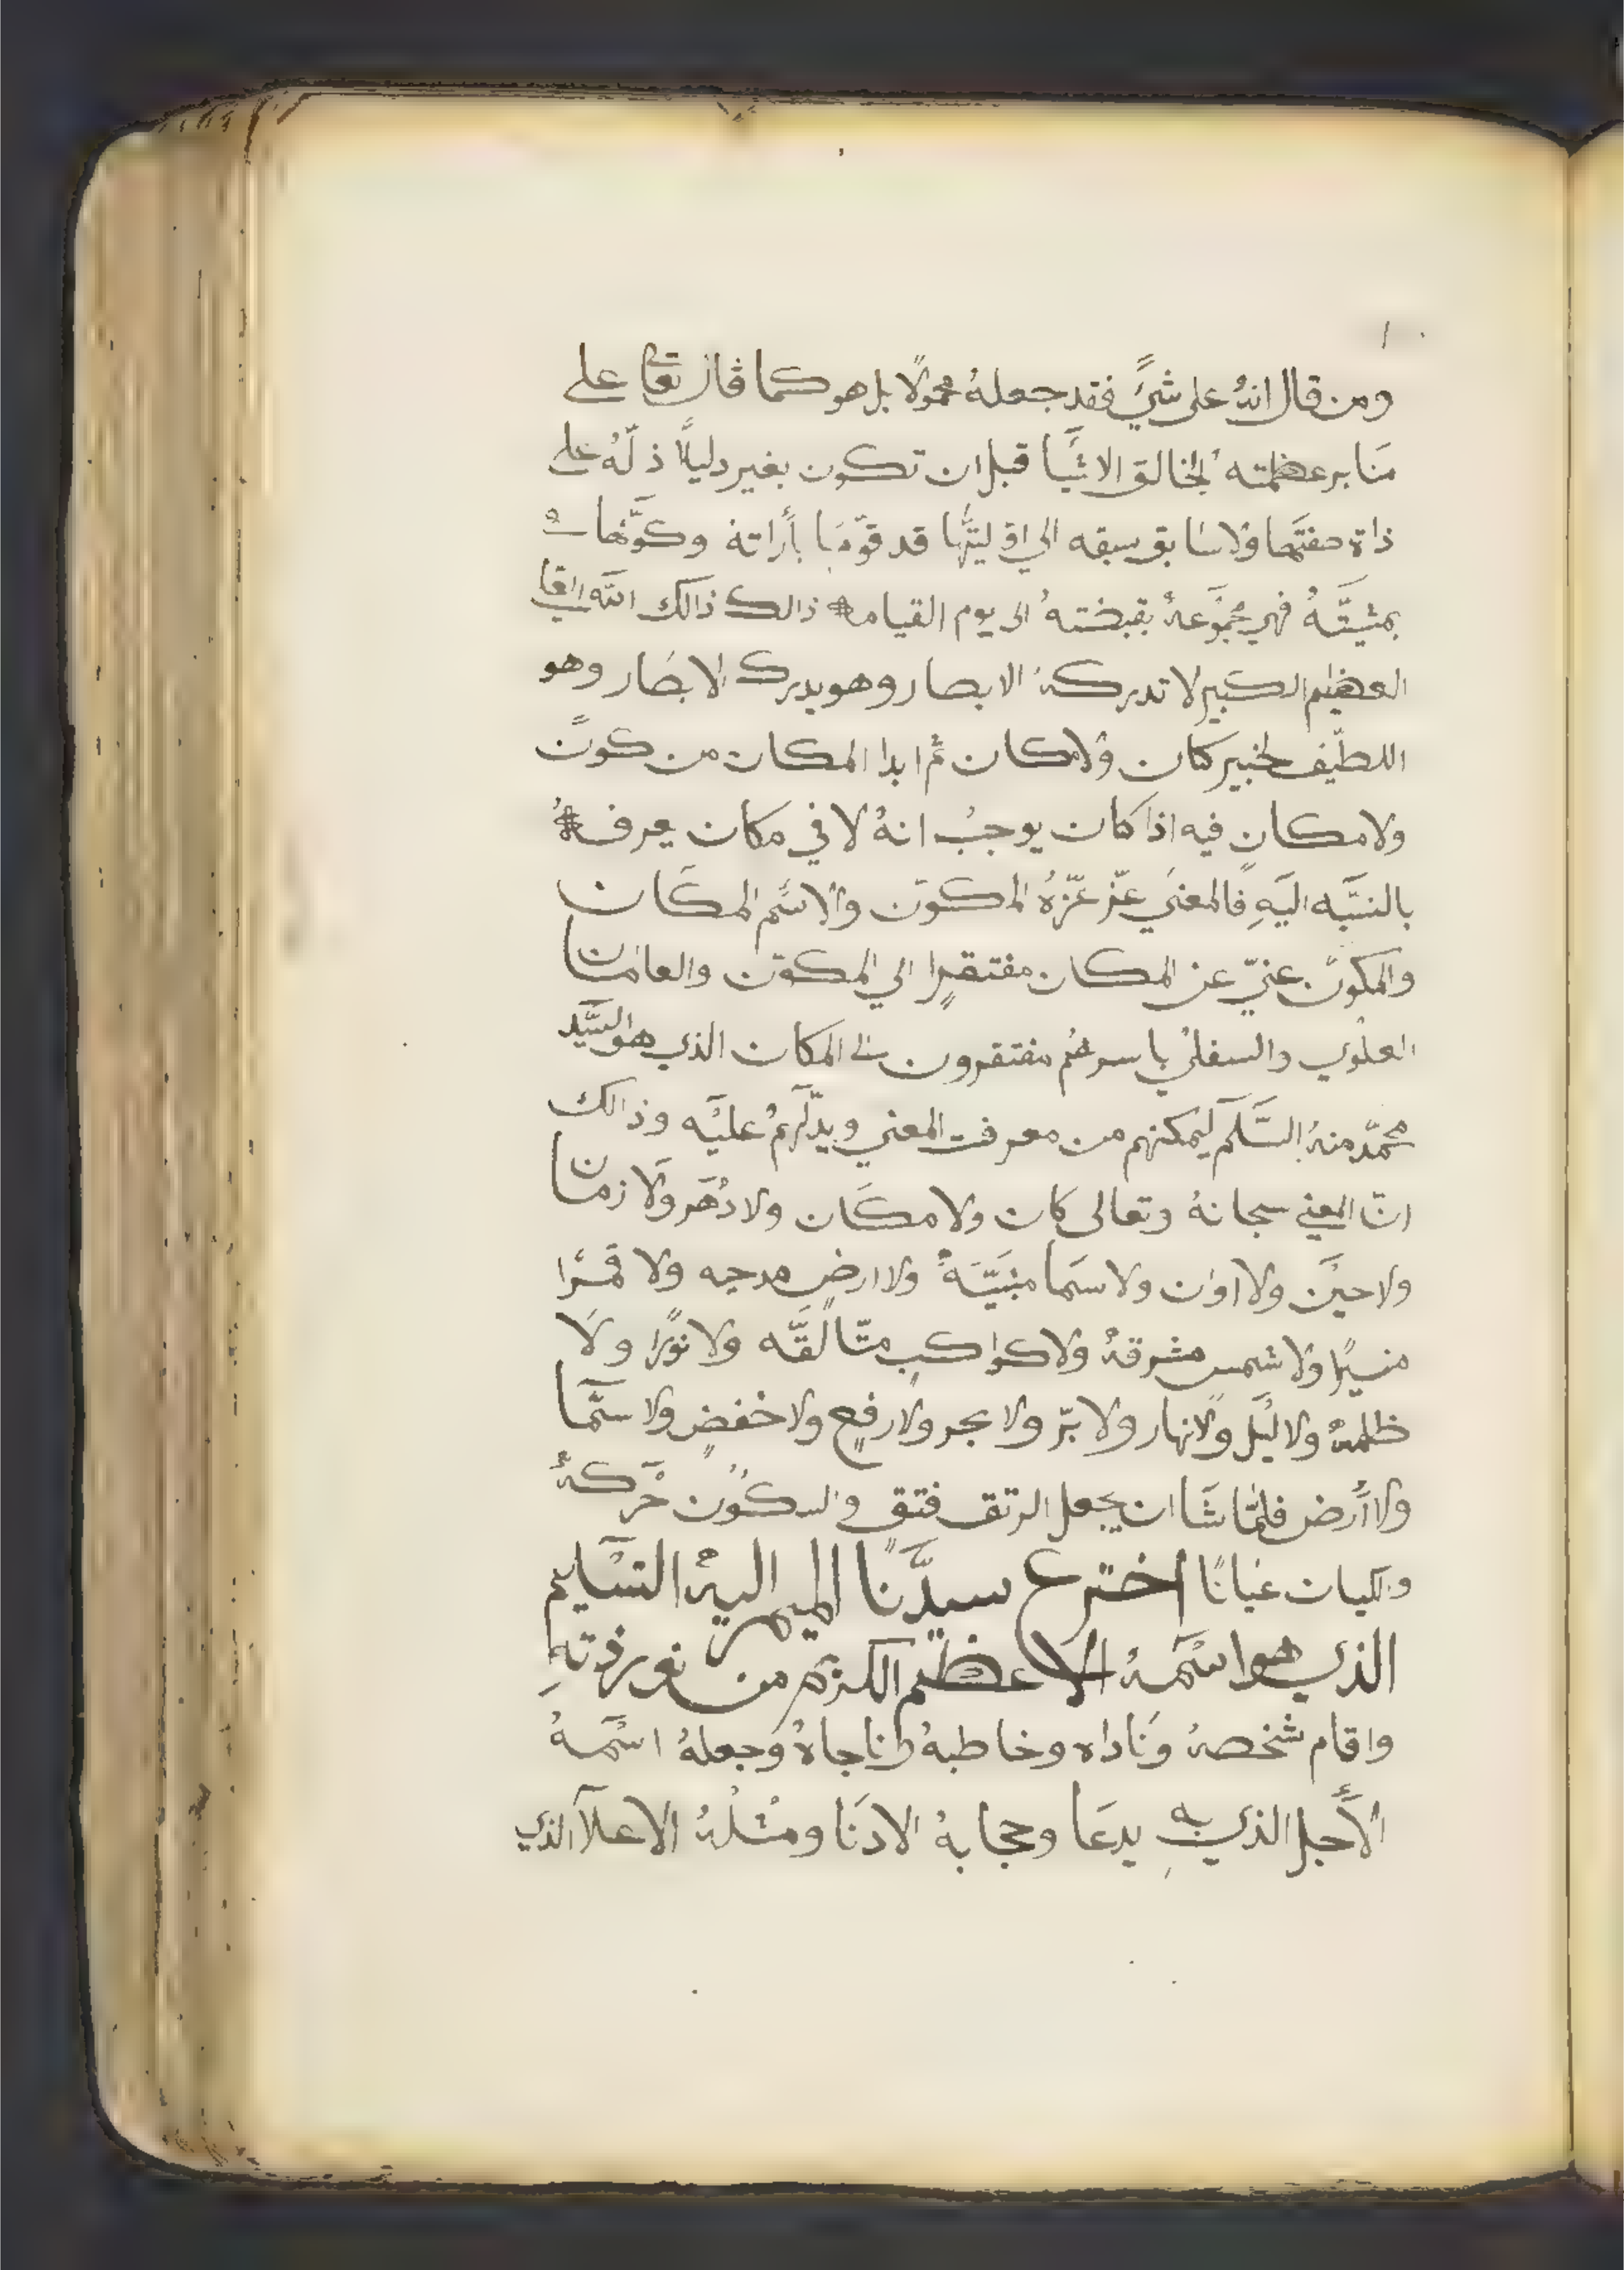 ١٠
ومن قال انهُ على شيءً فقد جعلهُ محمولًا بل هو كما قال تعالى على
منابر عظمته الخالق الاشيا قبل ان تكون بغير دليلًا ذلّهُ على
ذاة صفتها ولا سابق سبقه الي اوليتها قد قوّمها بأراتة وكوَّنها
بمشيتَّهُ فهي مجموعهٌ بقبضتهُ الى يوم القيامه ذالك ذالك الله
العظيم الكبير لا تدركهُ الابصار وهو يدرك الابصار وهو
اللطيف الخبير كان ولا مكان ثم ابدا المكان من كونً
ولا مكان فيه اذا كان يوجبُ انهُ لا في مكان يعرف
بالنسَّبه اليَهِ فالمعني عزّ عزّهُ المكوّن والاسْم المكان
والمكونً غنيّ عن المكان مفتقرٍا الي المكوّن والعالمان
العلوي والسفلي باسرهُم مفتقرون الى المكان الذي هو السَّيد
محمّد منهُ السَّلَم ليمكنهم من معرفت المعني ويدّلَهمْ عليْه وذالك
انّ المعني سبحانهُ وتعالى كان ولا مكَان ولا دهَر ولَا زمان
ولا حيَن ولا اوان ولا سمَا مبنيَّهٌ ولا ارضٍ مدحيه ولا قمرًا
منيرًا ولا شمس مشرقهٌ ولا كواكبٍ متّالقَّه ولا نورًا ولَا
ظلمهٌ ولا ليْل ولانهار ولا برّ ولا بحر ولا رفعٍ ولا خفضٍ ولا سمّآ
ولا أرض فلمّا شَا ان يجعل الرتق فتق والسكون حَركهٌ
والكيان عيانًا اختَرع سيدَّنَا الميم اليهْ التسْليم
الذي هوا سْمهُ الاعظم الكريم من نور ذتهِ
واقام شخصهُ ونَاداه وخاطبهُ وناجاهُ وجعلهُ اسْمهُ
الأَجل الذي بهِ يدعَا وحجابهُ الادنَا ومثلهُ الاعلآ الذي